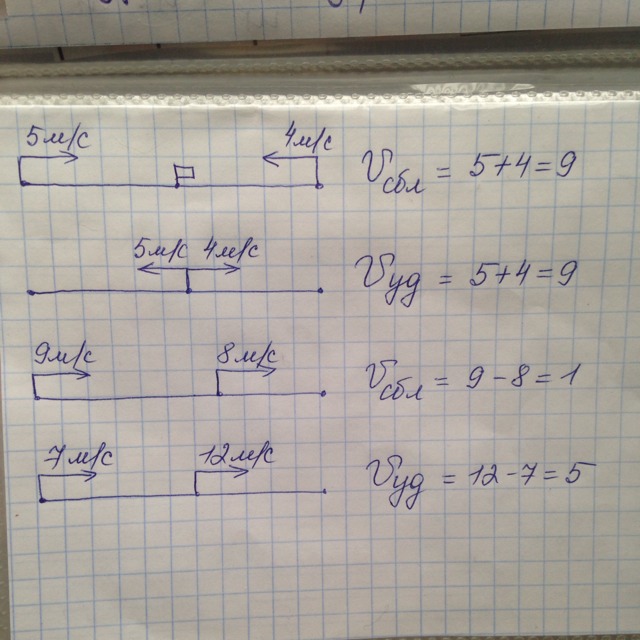 5м/с 4м/с Vсбл = 5+4=9
5м/с 4м/с Vуд = 5+4=9
9м/с 8м/с Vсбл = 9-8=1
7м/с 12м/с Vуд = 12-7=5